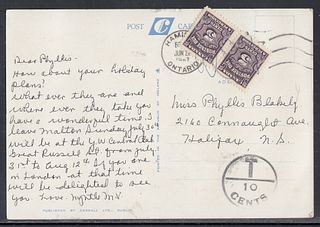 POST CARD
Dear Phyllis -
How about your holiday
plans?
What ever they are and
where ever they take you
have a wonderful time. I
leave Malton Sunday, July 30 &
will be at the YW Central Club
Great Russell St. from July
31st to Aug 12th. If you are
in London at that time
will be delighted to see
you. Love. Myrtle
HAMILTON
ONTARIO
Miss Phyllis Blakely
2160 Connaught Ave
Halifax, N.S.
T
10
CENTS
PUBLISHED BY CARDALL LTD., DUBLIN